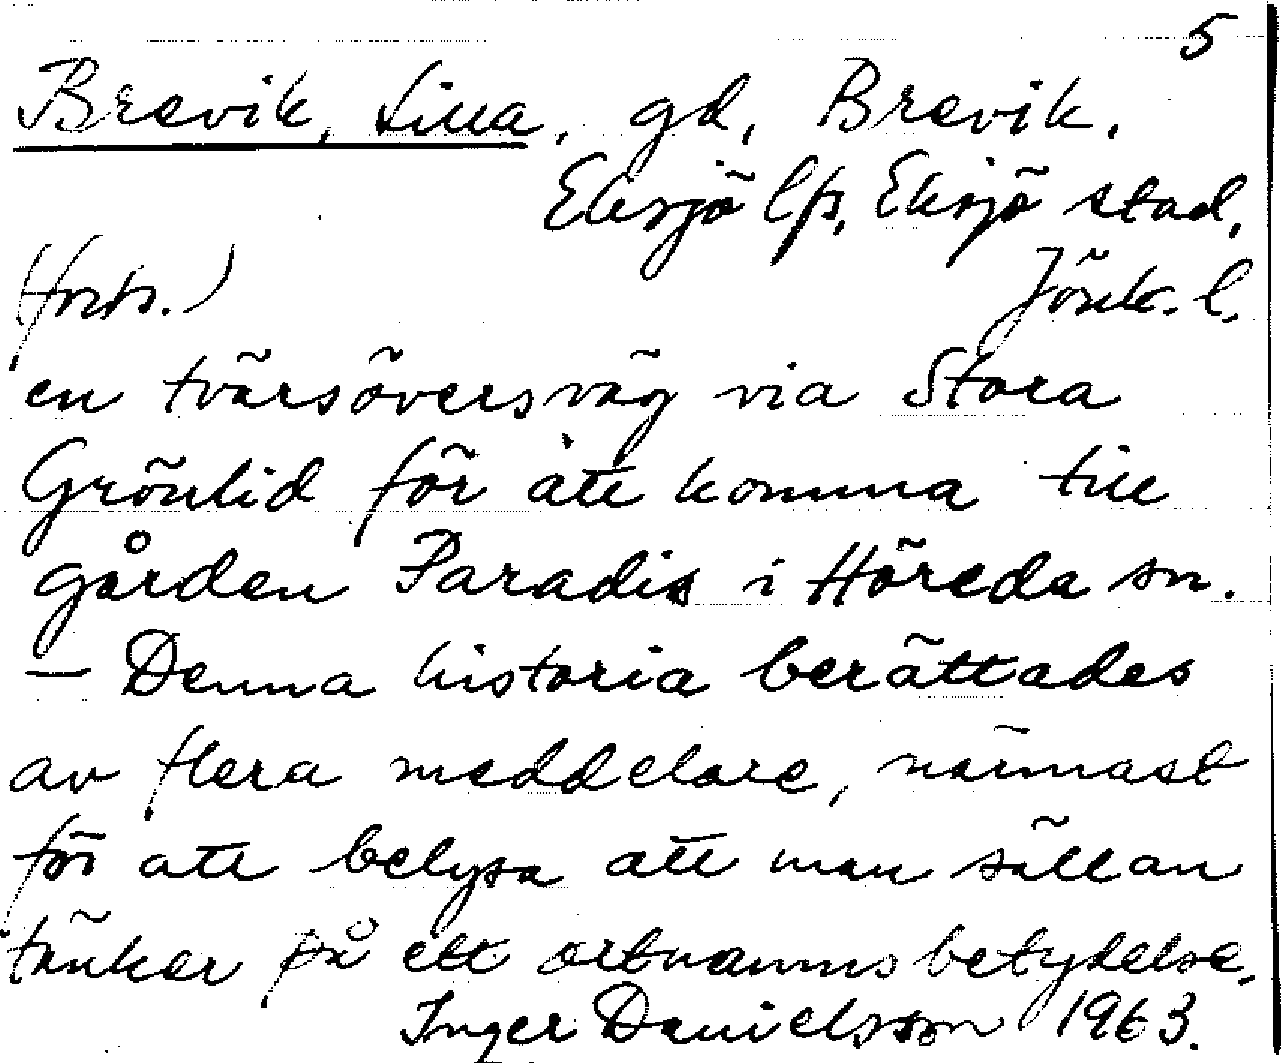 5
Brevik, Lilla, gd, Brevik.
Eksjö lfs, Eksjö stad,
(forts.) Jönk. l.
en tvärsöversväg via Stora
Grönlid för att komma till
gården Paradis i Höreda sn.
— Denna historia berättades
av flera meddelare, närmast
för att belysa att man sällan
tänker på ett ortnamns betydelse.
Inger Danielsson 1963.